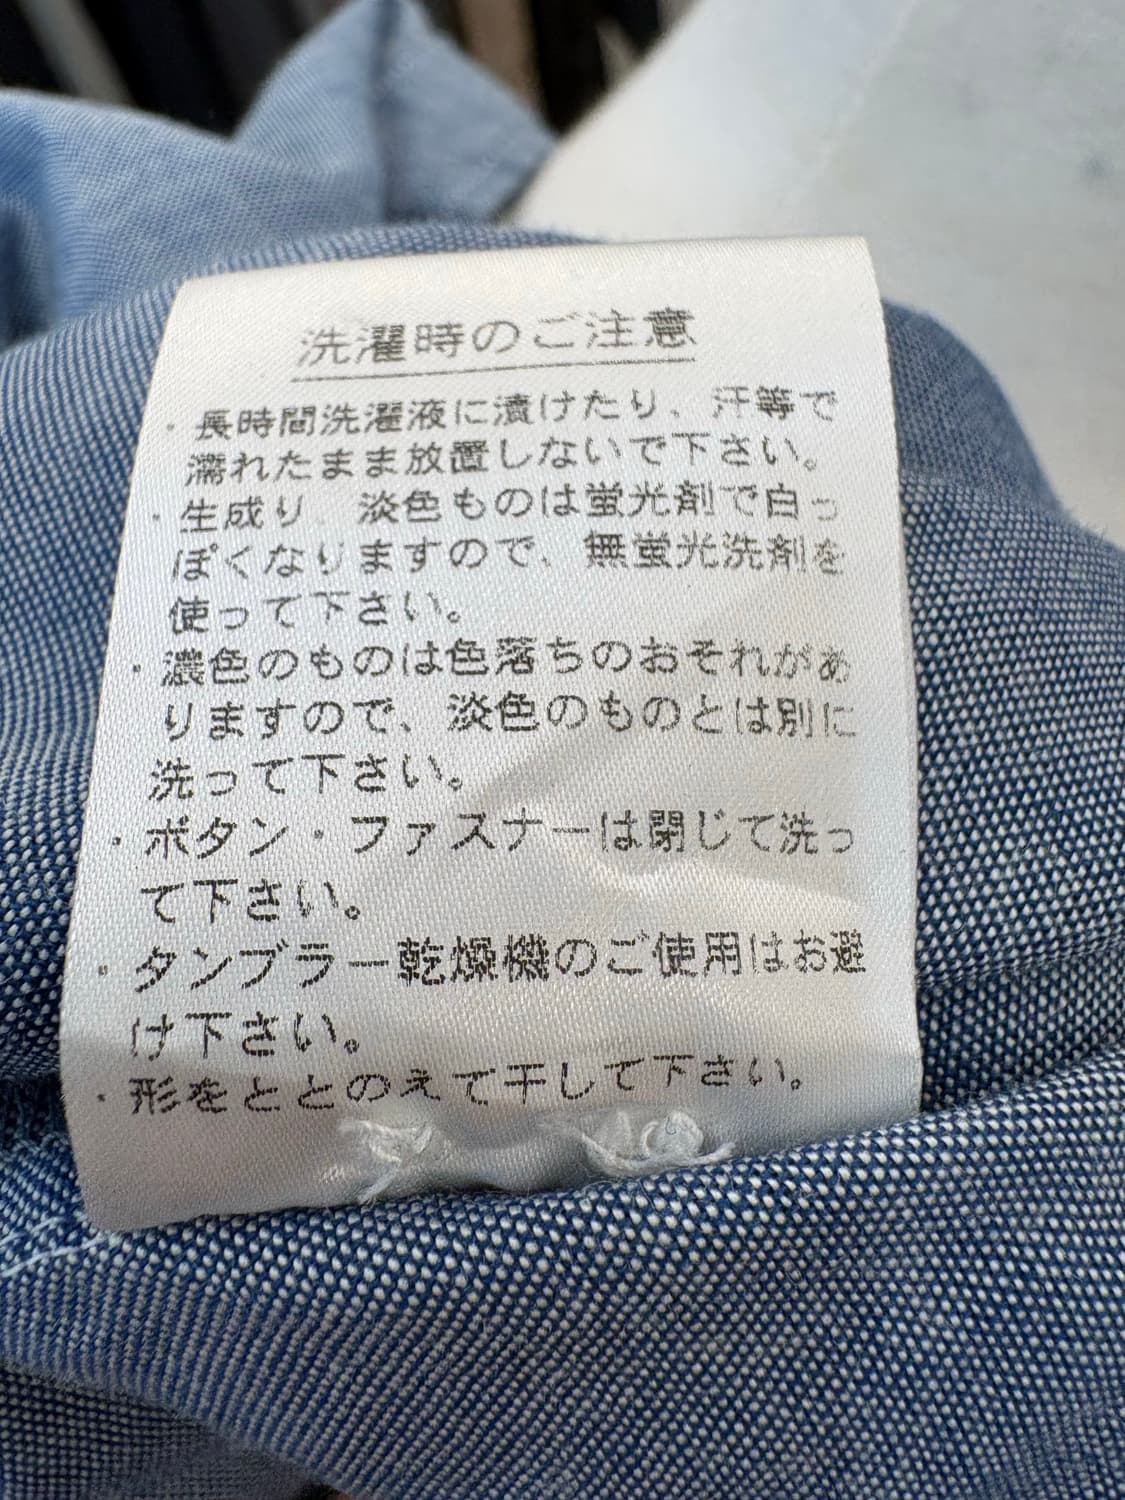 洗濯時のご注意
・長時間洗濯液に漬けたり、汗等で
濡れたまま放置しないで下さい。
・生成り、淡色ものは蛍光剤で白っ
ぽくなりますので、無蛍光洗剤を
使って下さい。
・濃色のものは色落ちのおそれがあ
りますので、淡色のものとは別に
洗って下さい。
・ボタン・ファスナーは閉じて洗っ
て下さい。
・タンブラー乾燥機のご使用はお避
け下さい。
・形をととのえて干して下さい。